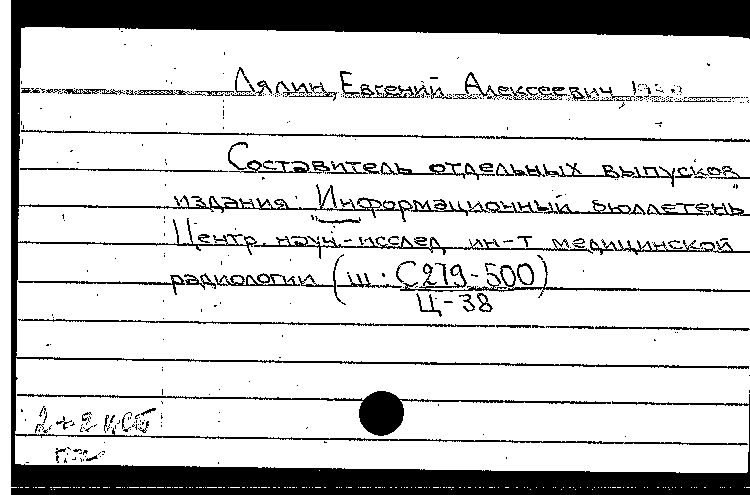 Лялин, Евгений Алексеевич,
Составитель отдельных выпусков
издания: "Информационный бюллетень"
Центр. науч.-исслед. ин-т медицинской
радиологии (ш. С279-500)
Ц-38
2+2 ИСБ